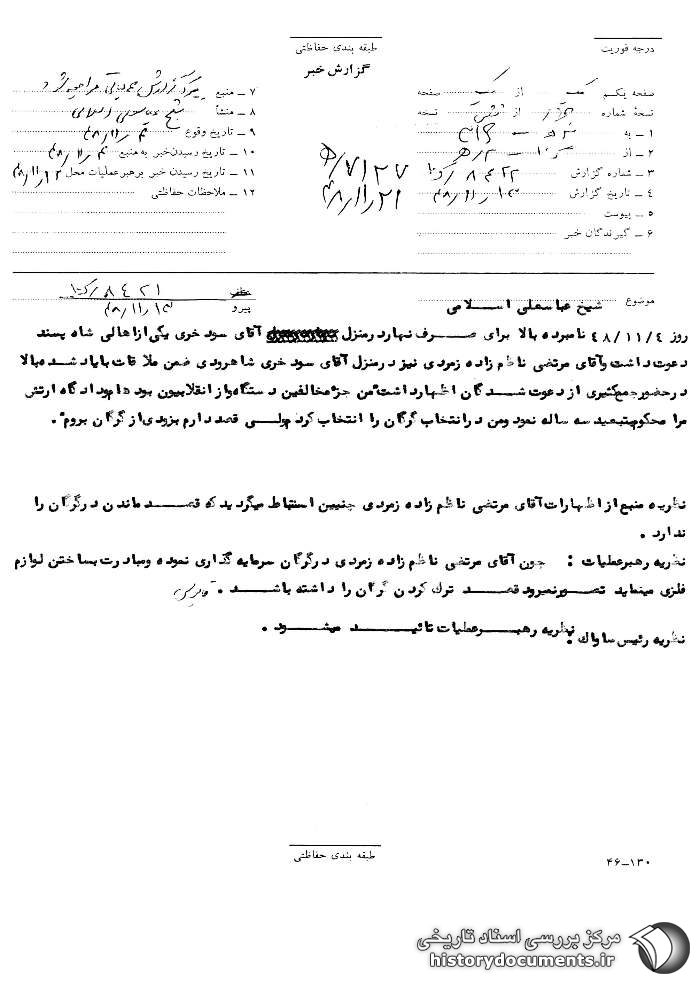 طبقه بندی حفاظتی
درجه فوریت
گزارش خبر
صفحه یکم از صفحه
نسخهٔ شماره از نسخه
۱ ـ به
۲ ـ از
۳ ـ شماره گزارش ۸۴۲۲
۴ ـ تاریخ گزارش ۴۸/۱۱/۱۳
۵ ـ پیوست
۶ ـ گیرندگان خبر
۷ ـ منبع
۸ ـ منشأ شیخ عباسعلی اسلامی
۹ ـ تاریخ وقوع ۴۸/۱۱/۴
۱۰ ـ تاریخ رسیدن خبر به منبع ۴۸/۱۱/۴
۱۱ ـ تاریخ رسیدن خبر برهبر عملیات محل
۱۲ ـ ملاحظات حفاظتی
۵/۷۱۲۷
۴۸/۱۱/۲۱
موضوع شیخ عباسعلی اسلامی
عطف ۸۴۲۱
پیرو ۴۸/۱۱/۱۳
روز ۴۸/۱۱/۴ نامبرده بالا برای صرف نهار در منزل آقای سود خری یکی از اهالی شاه پسند
دعوت داشت و آقای مرتضی ناظم زاده زمردی نیز در منزل آقای سود خری شاهرودی ضمن ملاقات با یاد شده بالا
در حضور جمع کثیری از دعوت شدگان اظهار داشت من جزء مخالفین دستگاه و از انقلابیون بوده ام و دادگاه ارتش
مرا محکوم بتبعید سه ساله نمود و من در انتخاب گرگان را انتخاب کردم ولی قصد دارم بزودی از گرگان بروم .
نظریه منبع از اظهارات آقای مرتضی ناظم زاده زمردی چنین استنباط میگردید که قصد ماندن در گرگان را
ندارد .
نظریه رهبر عملیات : چون آقای مرتضی ناظم زاده زمردی در گرگان سرمایه گذاری نموده و مبادرت بساختن لوازم
فلزی مینماید تصور نمیرود قصد ترک کردن گرگان را داشته باشد .
نظریه رئیس ساواک : نظریه رهبر عملیات تائید میشود .
طبقه بندی حفاظتی
۴۶-۱۳۰
مرکز بررسی اسناد تاریخی
historydocuments.ir